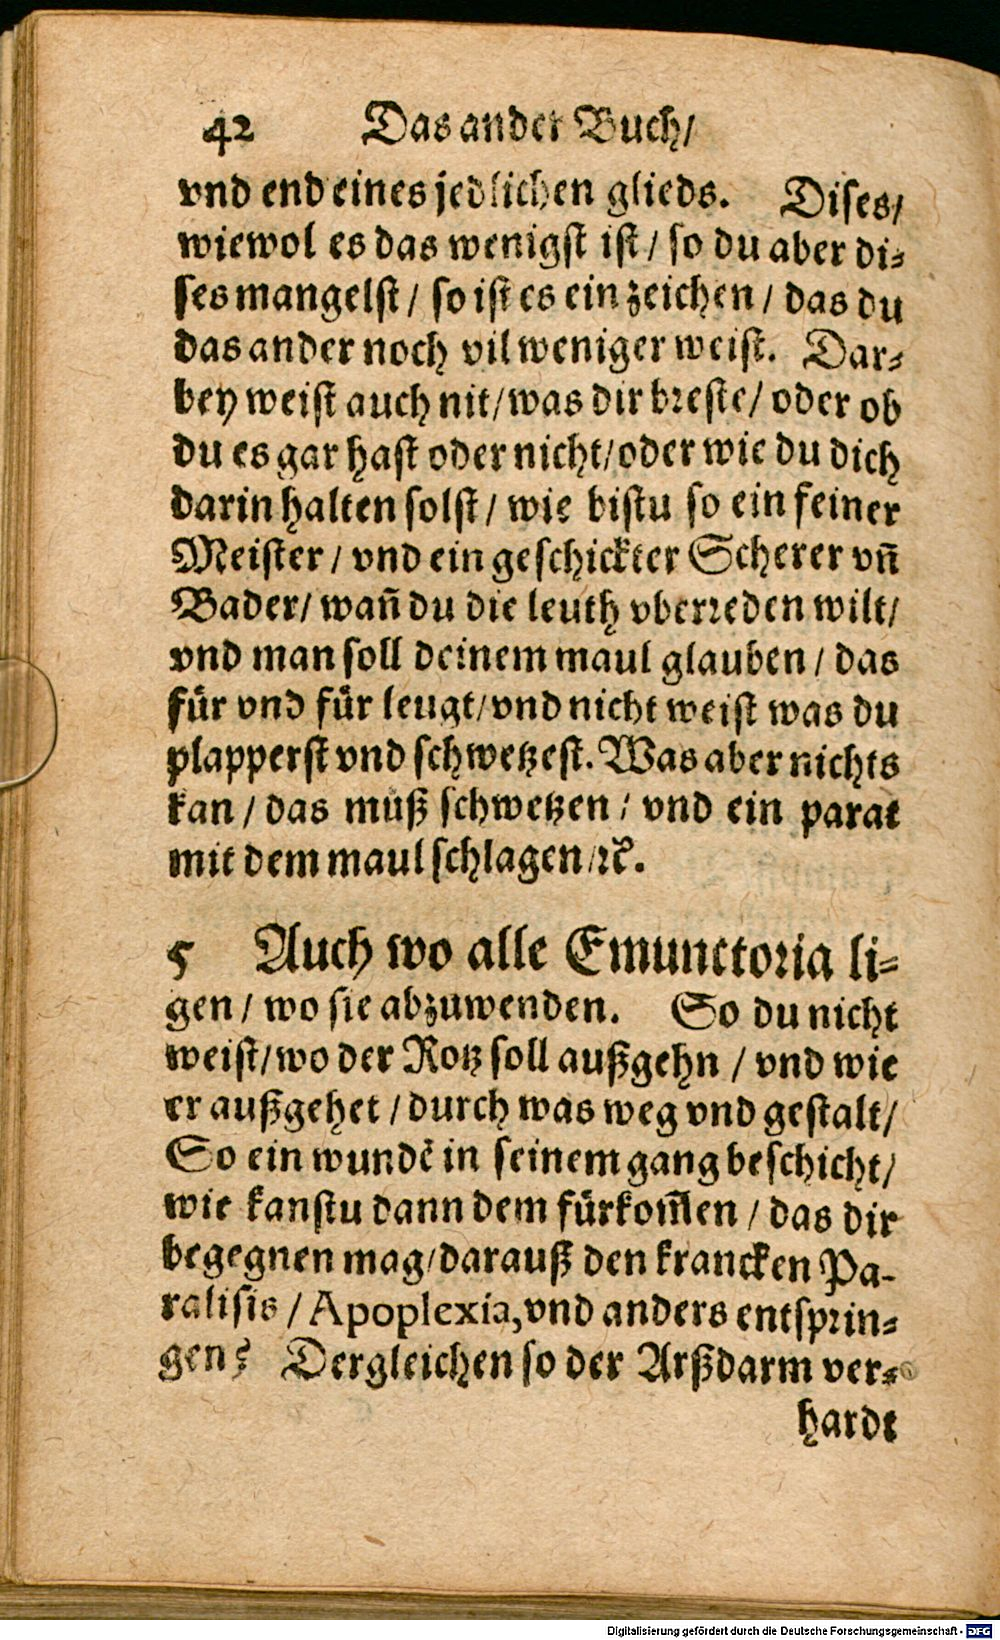 42 Das ander Buch/
vnd end eines jedlichen glieds. Dises/
wiewol es das wenigst ist / so du aber di⸗
ses mangelst / so ist es ein zeichen / das du
das ander noch vil weniger weist. Dar⸗
bey weist auch nit/was dir breste/ oder ob
du es gar hast oder nicht/oder wie du dich
darin halten solst / wie bistu so ein feiner
Meister / vnd ein geschickter Scherer vñ
Bader/ wañ du die leuth vberreden wilt/
vnd man soll deinem maul glauben / das
für vnd für leugt/vnd nicht weist was du
plapperst vnd schwetzest. Was aber nichts
kan / das müß schwetzen / vnd ein parat
mit dem maul schlagen /ꝛc.
5 Auch wo alle Emunctoria li⸗
gen / wo sie abzuwenden. So du nicht
weist/wo der Rotz soll außgehn / vnd wie
er außgehet / durch was weg vnd gestalt/
So ein wundẽ in seinem gang beschicht/
wie kanstu dann dem fürkom̃en / das dir
begegnen mag/darauß den krancken Pa-
ralisis / Apoplexia,vnd anders entsprin⸗
gen? Dergleichen so der Arßdarm ver⸗
hardt
Digitalisierung gefördert durch die Deutsche Forschungsgemeinschaft - DFG